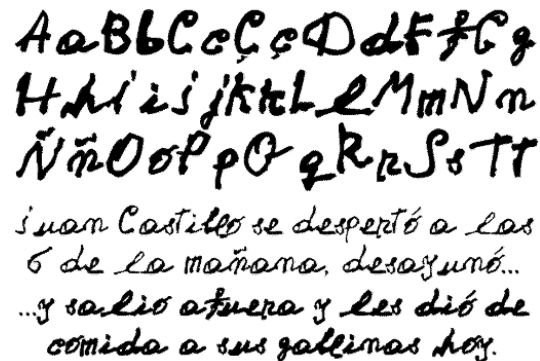 A a B b C c Ç ç D d F f G g
H h i i j j K k L l M m N n
Ñ ñ O o P p Q q R r S s T t
juan Castillo se despertó a las
6 de la mañana, desayunó...
...y salio afuera y les dió de
comida a sus gallinas hoy.